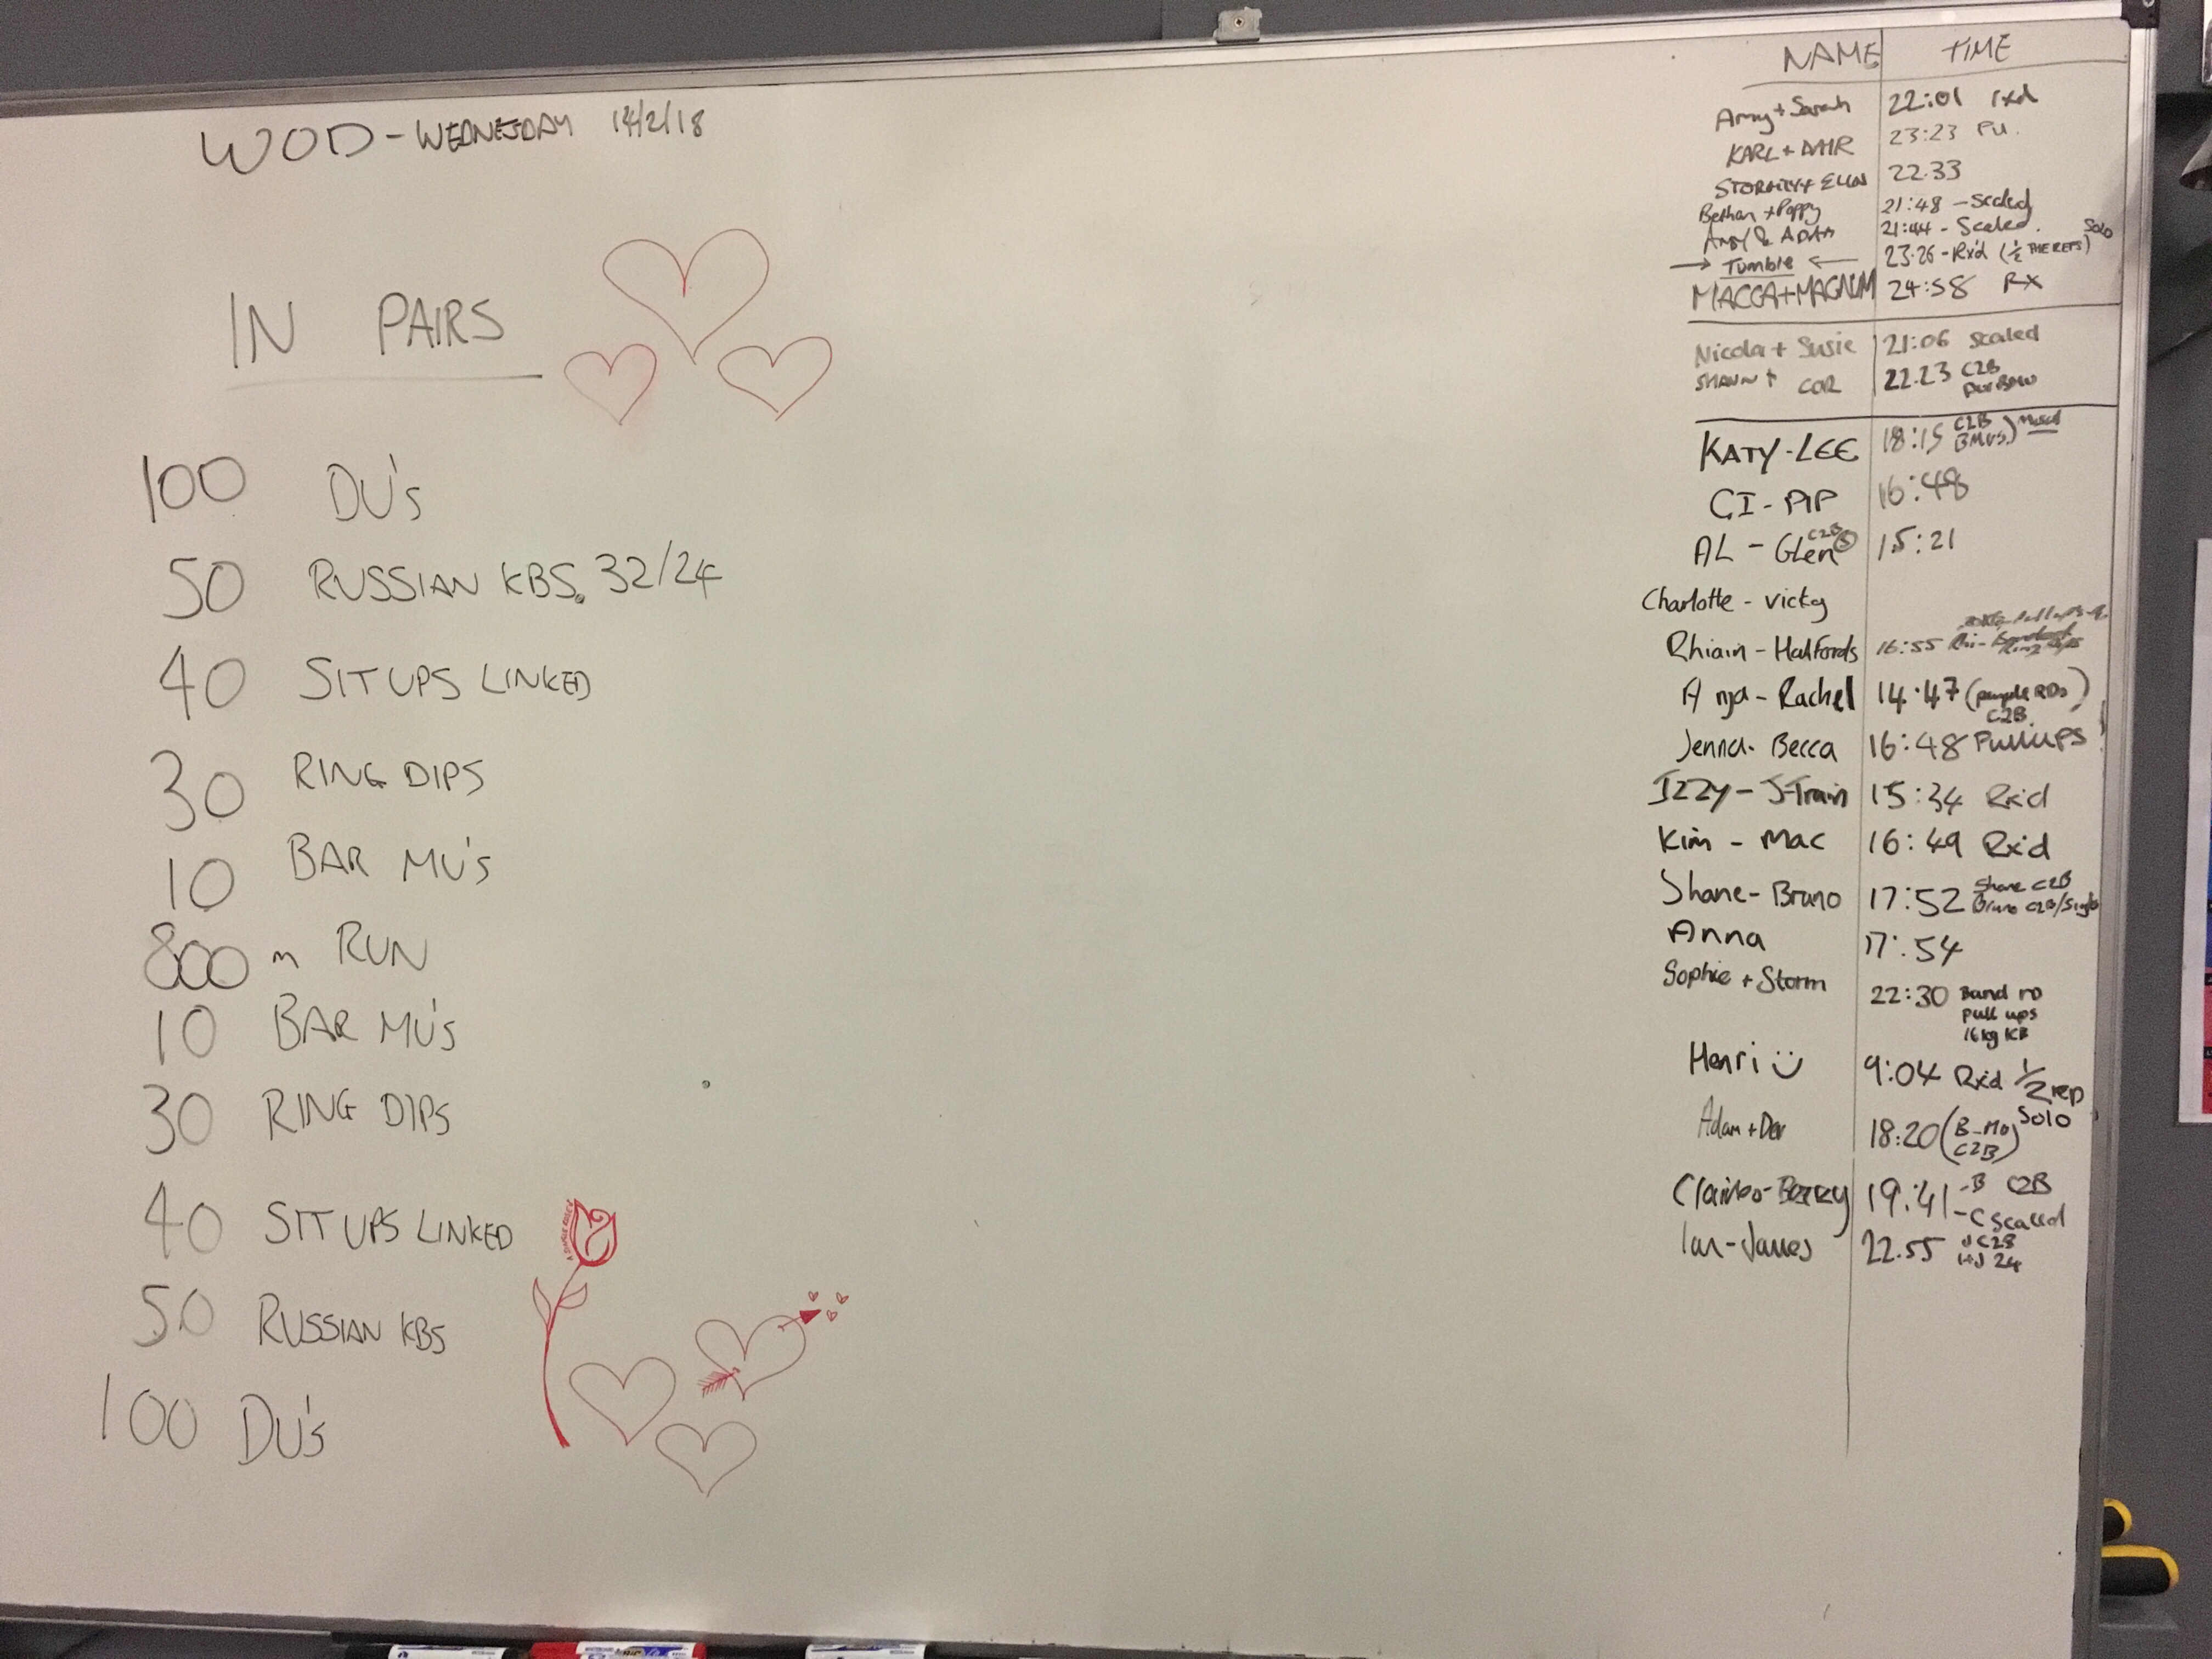 WOD - WEDNESDAY 14/2/18
IN PAIRS
100 DU's
50 RUSSIAN KBS. 32/24
40 SIT UPS LINKED
30 RING DIPS
10 BAR MU'S
800 m RUN
10 BAR MU'S
30 RING DIPS
40 SIT UPS LINKED
50 RUSSIAN KBS
100 DU's
NAME TIME
Amy + Sarah 22:01 rxd
KARL + 23:23 PU.
22.33
Bethan + Poppy 21:48 - Scaled
& ADAM 21:44 - Scaled.
→ Tumble ← 23.26 - Rx'd (½ THE REPS) Solo
MACCA + MAGNUM 24:58 RX
Nicola + Susie 21:06 scaled
SHAUN + COR 22.23 C2B
KATY-LEE 18:15 C2B BMUS)
CJ - PIP 16:48
AL - Glen C2B 15:21
Charlotte - Vicky
Rhiain - Halfords 16:55
Anja - Rachel 14.47 (purple RDs) C2B
Jenna - Becca 16:48 Pullups
Izzy - J-Train 15:34 Rx'd
Kim - Mac 16:49 Rx'd
Shane - Bruno 17:52 Shane C2B Bruno C2B/Single
Anna 17:54
Sophie + Storm 22:30 Band RD
pull ups
16kg KB
Henri 9:04 Rxd ½ rep
Solo
Adam + Dev 18:20 (B-MU C2B)
Berry 19:41 -B C2B
-C scaled
Ian - James 22.55 J C2B
24